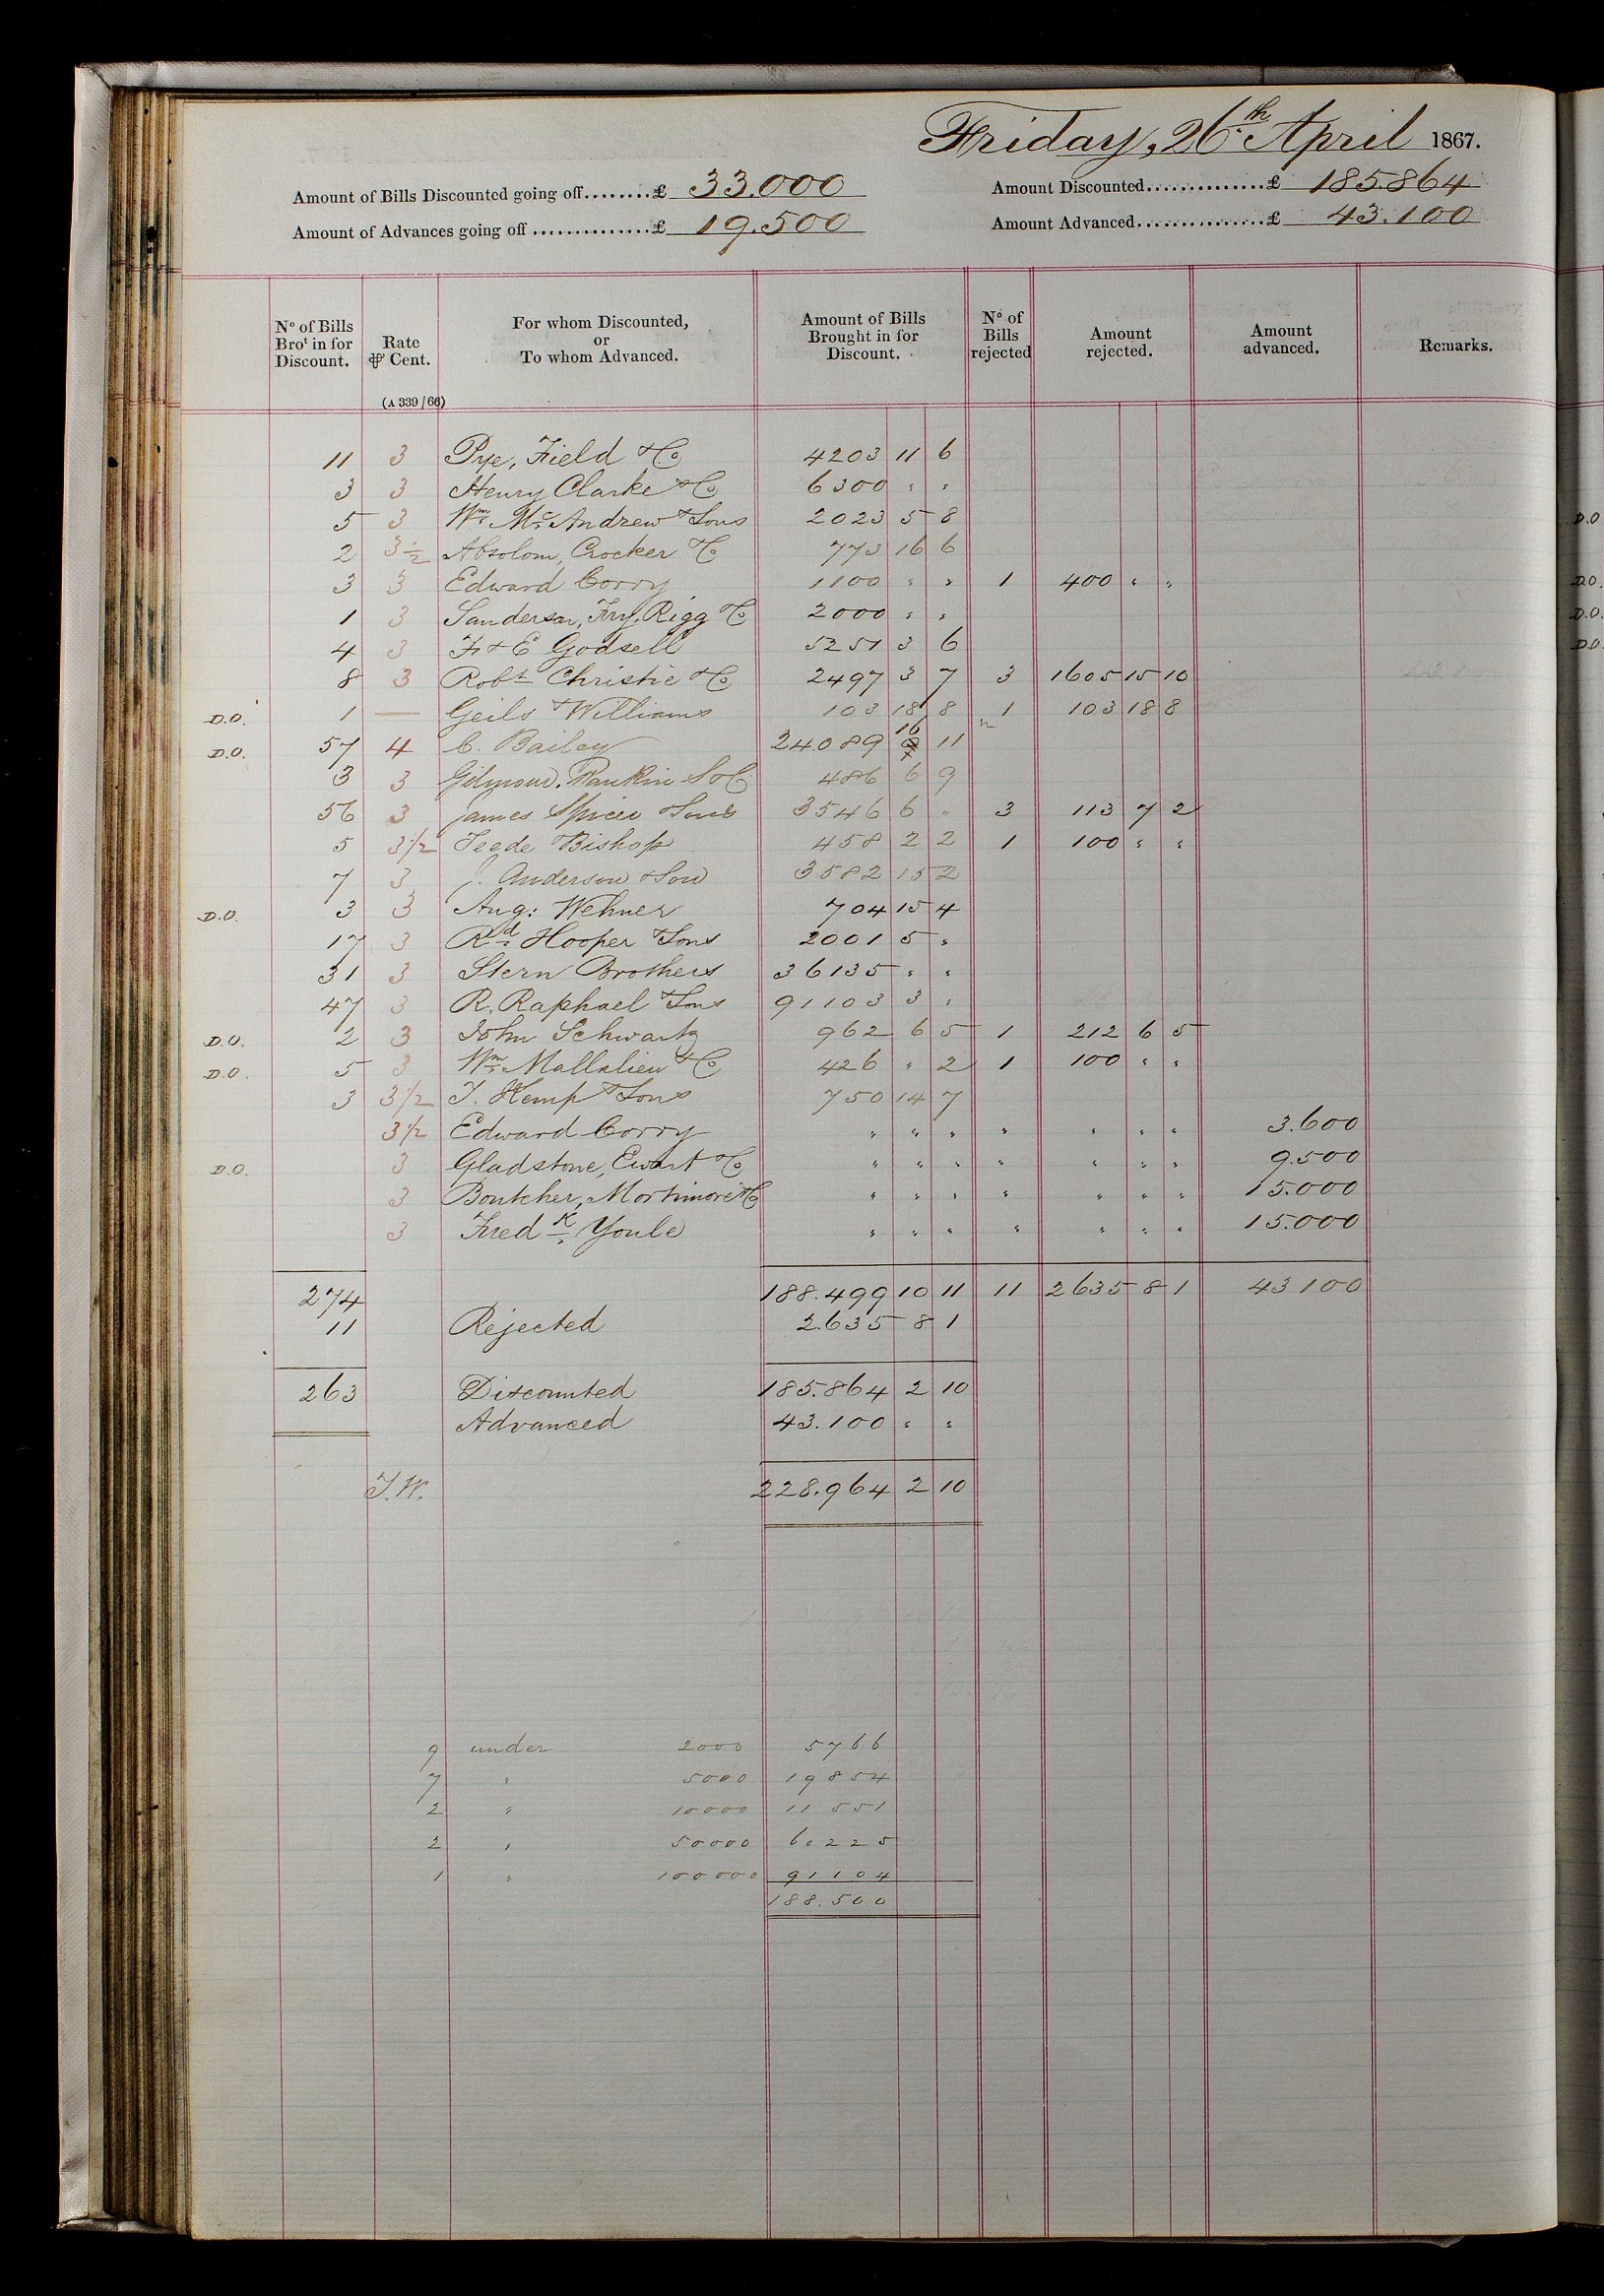 Friday, 26th April 1867.
Amount of Bills Discounted going off........£ 33.000 Amount Discounted..............£ 185.864
Amount of Advances going off ..............£ 19.500 Amount Advanced................£ 43.100
No of Bills Brot in for Discount. Rate ⅌ Cent. For whom Discounted, or To whom Advanced. Amount of Bills Brought in for Discount. No of Bills rejected Amount rejected. Amount advanced. Remarks.
(A 339/66)
11 3 Pye, Field & Co 4203 11 6
3 3 Henry Clarke & Co 6300 " "
5 3 Wm McAndrew & Sons 2023 5 8
2 3½ Absolom, Crocker & Co 773 16 6
3 3 Edward Corry 1100 " " 1 400 " "
1 3 Sanderson, Fry, Rigg & Co 2000 " "
4 3 F & E Godsell 5251 3 6
8 3 Robt Christie & Co 2497 3 7 3 1605 15 10
D.O. 1 — Geils & Williams 103 18 8 1 103 18 8
D.O. 57 4 C. Bailey 24.089 16 11
3 3 Gilmour, Rankin S & Co 486 6 9
56 3 James Spicer & Sons 3546 6 " 3 113 7 2
5 3½ Teede & Bishop 458 2 2 1 100 " "
7 3 J. Anderson & Son 3582 15 2
D.O. 3 3 Aug: Wehner 704 15 4
17 3 Rd Hooper & Sons 2001 5 "
31 3 Stern Brothers 36135 " "
47 3 R. Raphael & Sons 91103 3 "
D.O. 2 3 John Schwartz 962 6 5 1 212 6 5
D.O. 5 3 Wm Mallalieu & Co 426 " 2 1 100 " "
3 3½ T. Kemp & Sons 750 14 7
3½ Edward Corry " " " " " " " 3.600
D.O. 3 Gladstone, Ewart & Co " " " " " " " 9.500
3 Boutcher, Mortimore & Co " " " " " " " 15.000
3 Fredk Youle " " " " " " " 15.000
274 188.499 10 11 11 2635 8 1 43100
11 Rejected 2.635 8 1
263 Discounted 185.864 2 10
Advanced 43.100 " "
T.W. 228.964 2 10
9 under 2000 5766
7 " 5000 19854
2 " 10000 11551
2 " 50000 60225
1 " 100000 91104
188.500
D.O
D.O.
D.O.
D.O